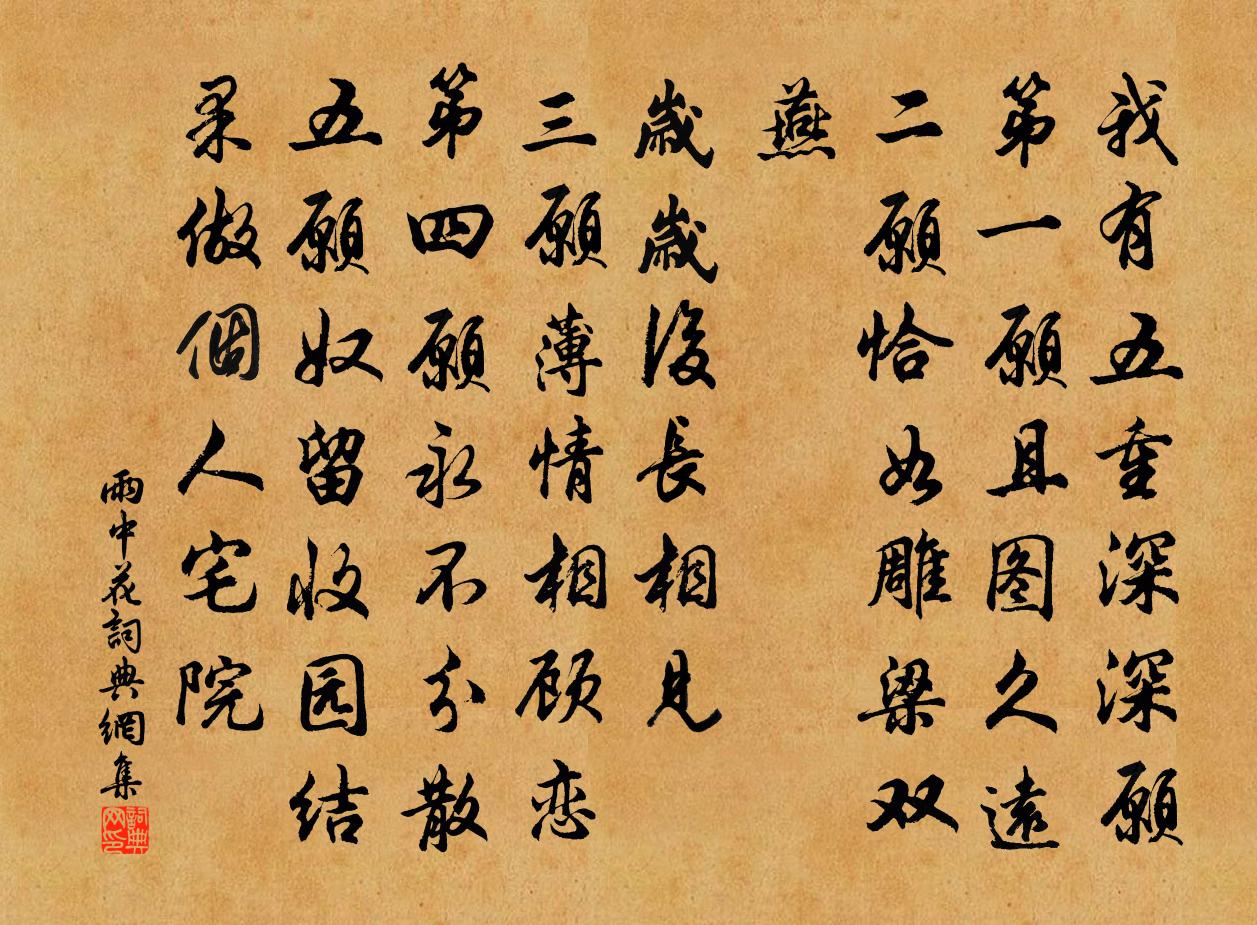 我有五重深深願
第一願且图久遠
二願恰如雕梁双
燕
歲歲後長相見
三願薄情相顾恋
第四願永不分散
五願奴留收园结
果做個人宅院
雨中花詞典網集
詞典网印